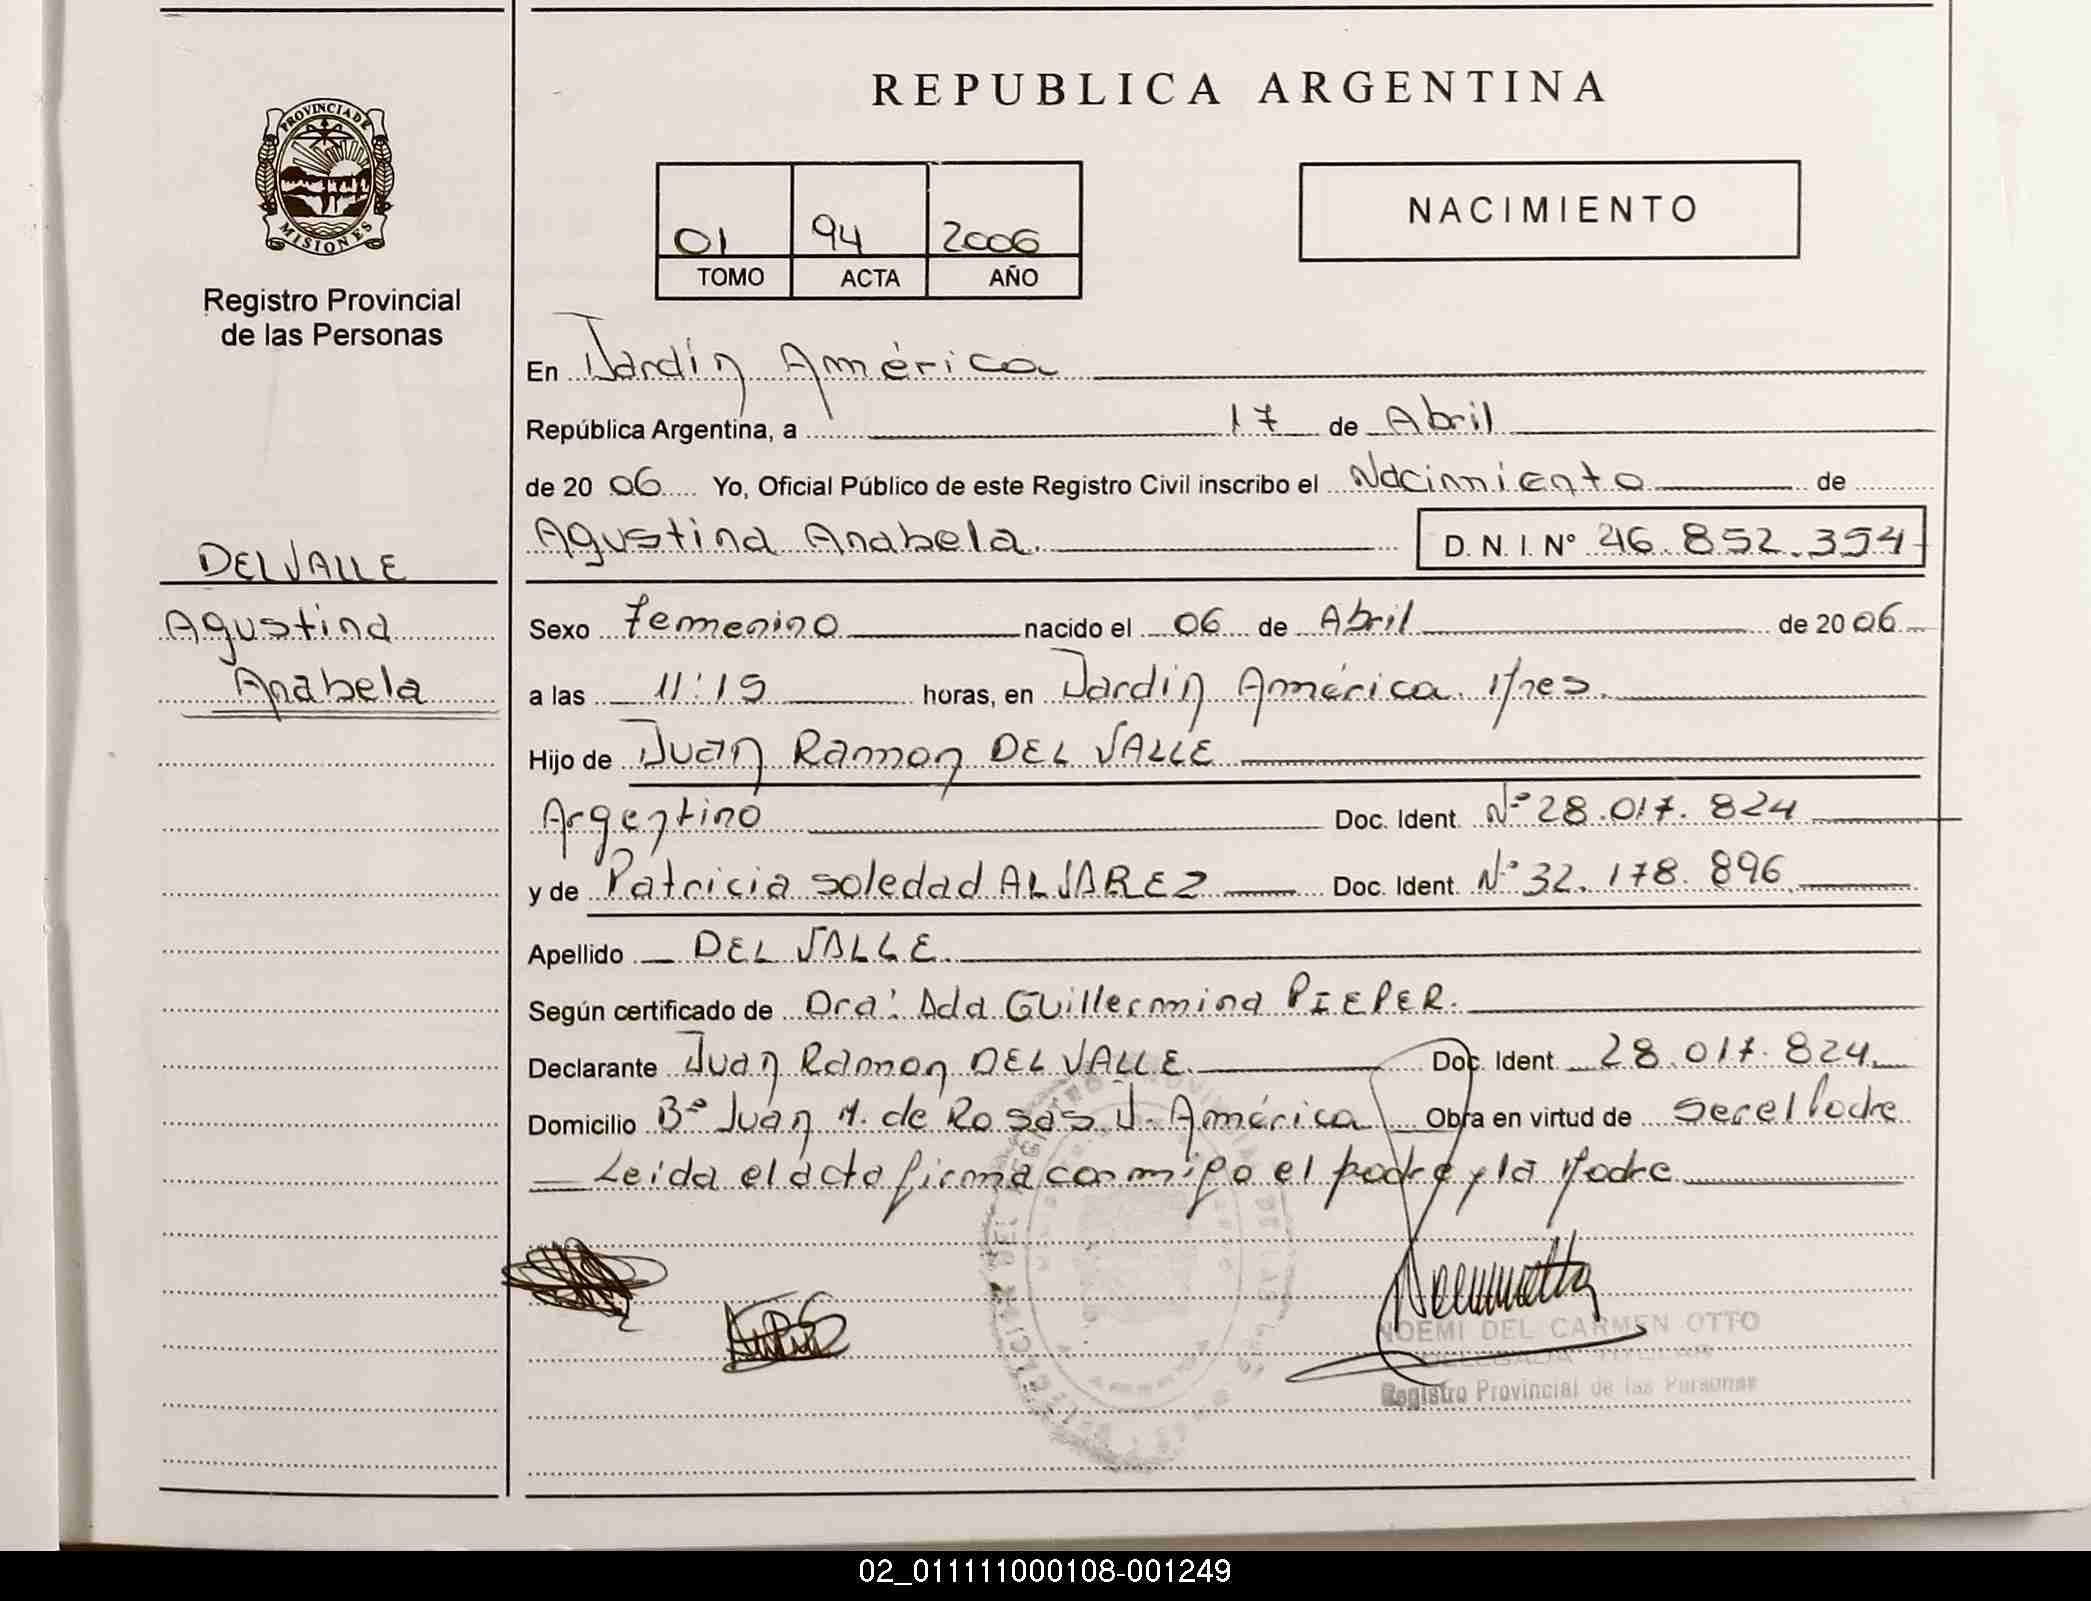 REPUBLICA ARGENTINA
PROVINCIA DE
MISIONES
Registro Provincial
de las Personas
01 94 2006
TOMO ACTA AÑO
NACIMIENTO
En Jardín América
República Argentina, a 17 de Abril
de 2006 Yo, Oficial Público de este Registro Civil inscribo el Nacimiento de
Agustina Anabela. D. N. I. N° 46.852.394
DEL VALLE
Agustina
Anabela
Sexo Femenino nacido el 06 de Abril de 2006
a las 11:15 horas, en Jardín América. Mnes.
Hijo de Juan Ramon DEL VALLE
Argentino Doc. Ident. Nº 28.017.824
y de Patricia Soledad ALVAREZ Doc. Ident. Nº 32.178.896
Apellido DEL VALLE.
Según certificado de Dra: Ada Guillermina PIEPER.
Declarante Juan Ramon DEL VALLE. Doc. Ident. 28.017.824.
Domicilio Bº Juan M. de Rosas J. América Obra en virtud de Ser el Padre
Leida el acta firma conmigo el padre y la Madre
NOEMI DEL CARMEN OTTO
DELEGADA TITULAR
Registro Provincial de las Personas
02_011111000108-001249